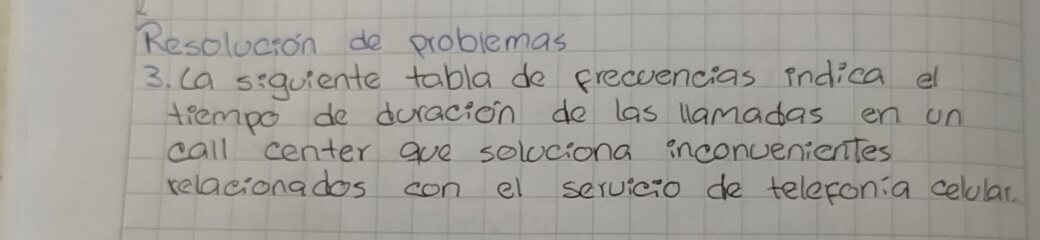 Resolución de problemas
3. La siguiente tabla de frecuencias indica el
tiempo de duración de las llamadas en un
call center que soluciona inconvenientes
relacionados con el servicio de telefonía celular.